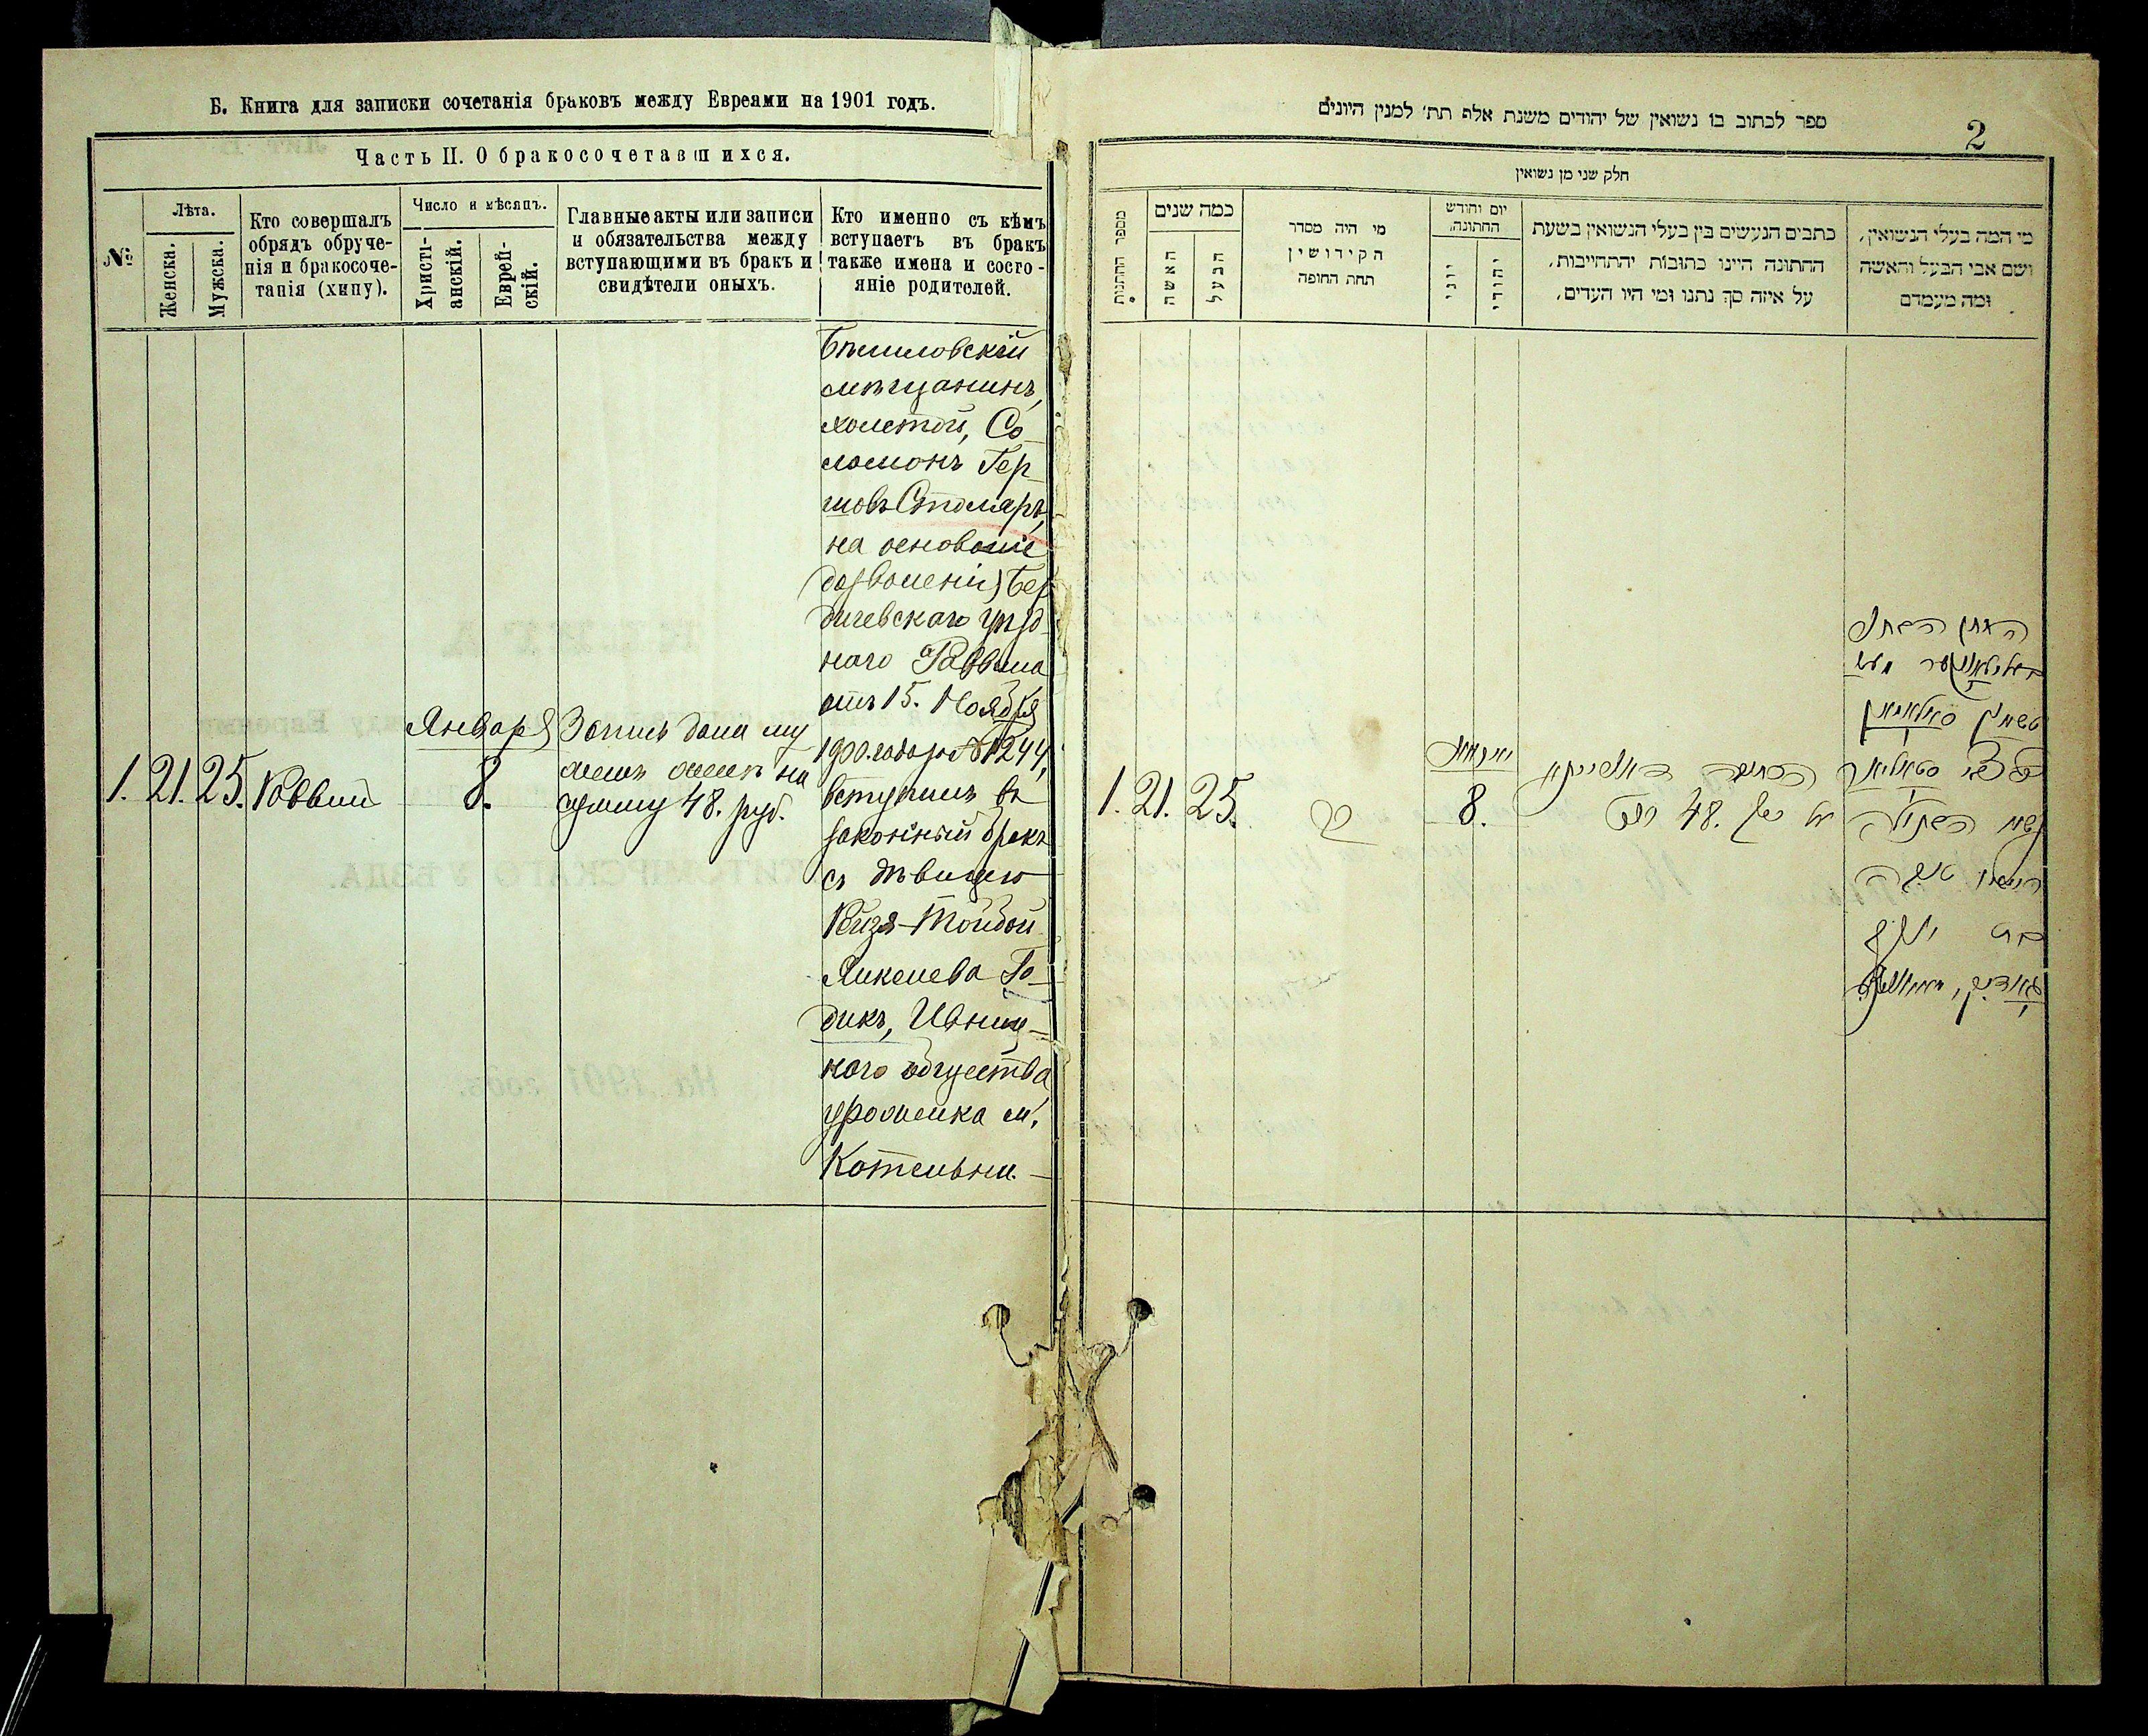 Б. Книга для записки сочетанія браковъ между Евреями на 1901 годъ.
Часть II. О бракосочетавшихся.
№
Лѣта.
Женска.
Мужска.
Кто совершалъ
обрядъ обруче-
нія и бракосоче-
танія (хипу).
Число и мѣсяцъ.
Христі-
анскій.
Еврей-
скій.
Главные акты или записи
и обязательства между
вступающими въ бракъ и
свидѣтели оныхъ.
Кто именно съ кѣмъ
вступаетъ въ бракъ
также имена и состо-
яніе родителей.
1. 21. 25. Раввин
Января
8.
Запись дана му
жемъ женѣ на
сумму 48. руб.
мѣщанинъ,
холостой, Со
ломонъ Гер
шовъ Столяръ,
на основаніе
дозволенія Бер
дичевскаго уѣзд
наго Раввина
отъ 15. Ноября
1900. года за № 1244,
вступилъ въ
законный бракъ
съ дѣвицею
Рейзя-Тойбой
Янкелева Го
дикъ, Ивниц-
каго общества,
уроженка м.
Котельни.
2
ספר לכתוב בו נשואין של יהודים משנת אלף תת׳ למנין היונים
חלק שני מן נשואין
מספר החתונות
כמה שנים
האשה
הבעל
מי היה מסדר
הקידושין
תחת החופה
יום וחודש
החתונה.
יוני
יהודי
כתבים הנעשים בין בעלי הנשואין בשעת
החתונה היינו כתובות יהתחייבות,
על איזה סך נתנו ומי היו העדים,
מי המה בעלי הנשואין,
ושם אבי הבעל והאשה
ומה מעמדם
1. 21. 25.
8.
על סך 48.